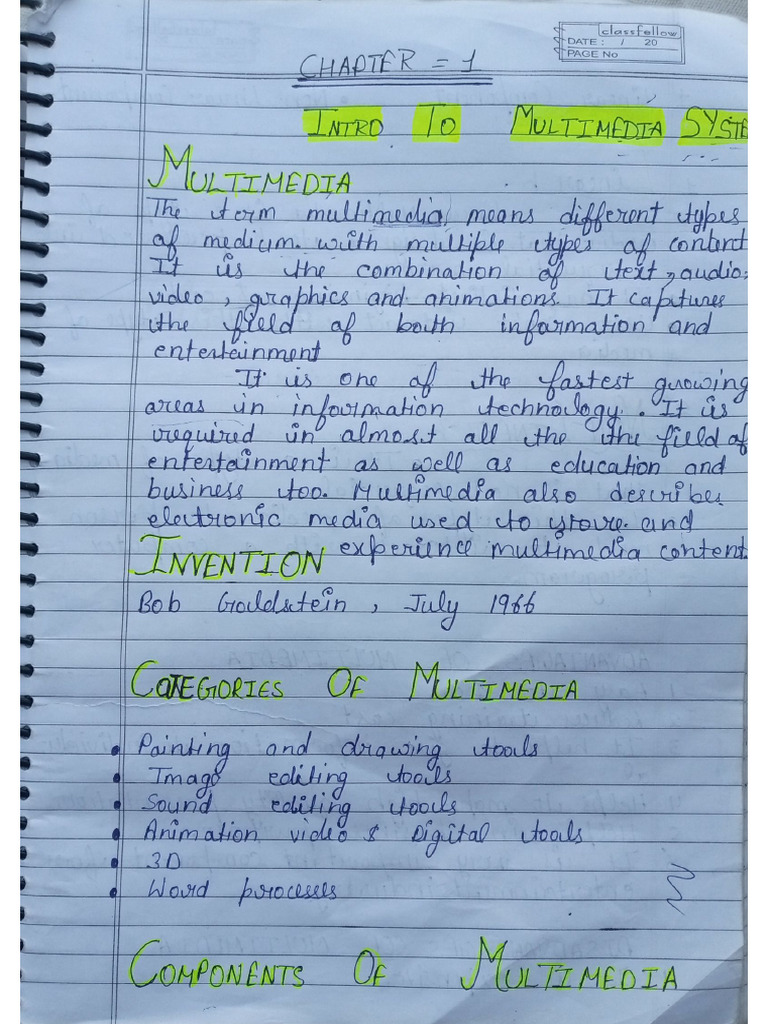 classfellow
DATE : / 20
PAGE No
CHAPTER = 1
INTRO TO MULTIMEDIA SYSTE
MULTIMEDIA
The term multimedia means different types
of medium. with multiple types of content
It is the combination of text, audio,
video, graphics and animations. It captures
the field of both information and
entertainment
It is one of the fastest growing
areas in information technology. It is
required in almost all the the field of
entertainment as well as education and
business too. Multimedia also describes
electronic media used to store and
experience multimedia content.
INVENTION
Bob Goldstein, July 1966
CATEGORIES OF MULTIMEDIA
• Painting and drawing tools
• Image editing tools
• Sound editing tools
• Animation video & Digital tools
• 3D
• Word processes
COMPONENTS OF MULTIMEDIA